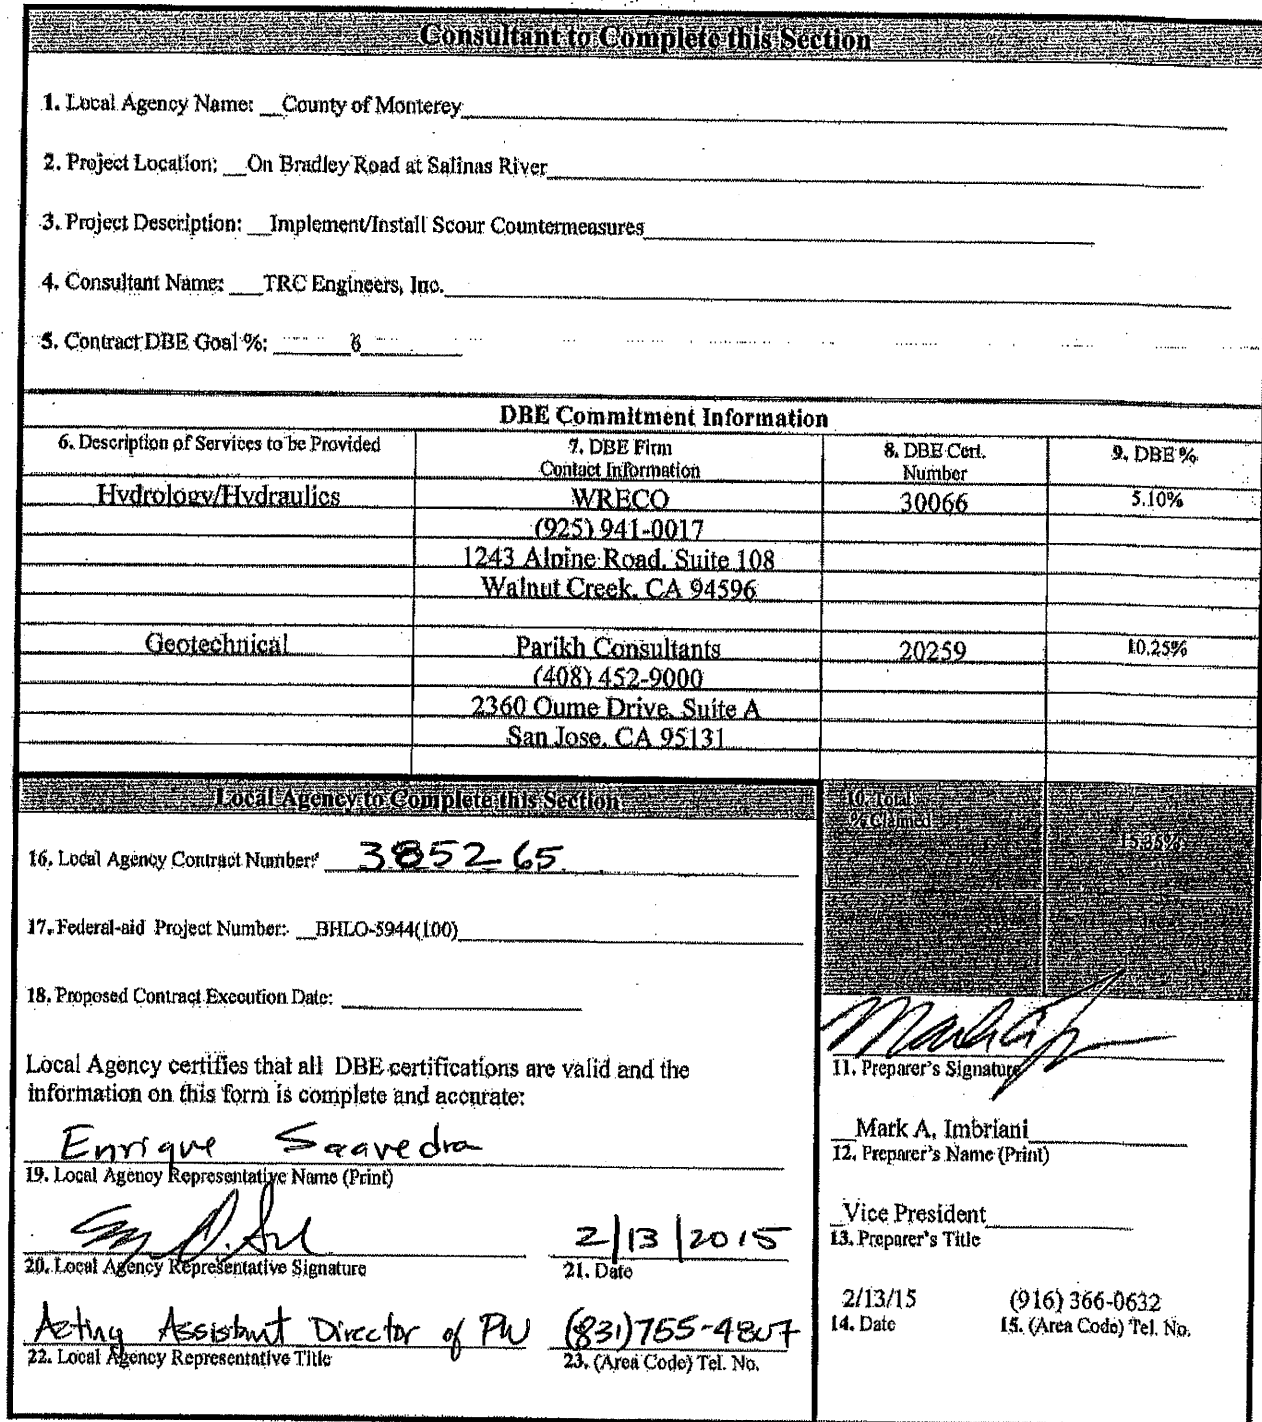 Consultant to Complete this Section
1. Local Agency Name: County of Monterey
2. Project Location: On Bradley Road at Salinas River
3. Project Description: Implement/Install Scour Countermeasures
4. Consultant Name: TRC Engineers, Inc.
5. Contract DBE Goal %: 6
DBE Commitment Information
6. Description of Services to be Provided
7. DBE Firm
Contact Information
8. DBE Cert.
Number
9. DBE %
Hydrology/Hydraulics WRECO 30066 5.10%
(925) 941-0017
1243 Alpine Road, Suite 108
Walnut Creek, CA 94596
Geotechnical Parikh Consultants 20259 10.25%
(408) 452-9000
2360 Qume Drive, Suite A
San Jose, CA 95131
Local Agency to Complete this Section
16. Local Agency Contract Number: 385265
17. Federal-aid Project Number: BHLO-5944(100)
18. Proposed Contract Execution Date:
Local Agency certifies that all DBE certifications are valid and the
information on this form is complete and accurate:
Enrique Saavedra
19. Local Agency Representative Name (Print)
20. Local Agency Representative Signature
2/13/2015
21. Date
Acting Assistant Director of PW
22. Local Agency Representative Title
(831)755-4807
23. (Area Code) Tel. No.
10. Total
% Claimed
15.35%
11. Preparer's Signature
Mark A. Imbriani
12. Preparer's Name (Print)
Vice President
13. Preparer's Title
2/13/15
14. Date
(916) 366-0632
15. (Area Code) Tel. No.